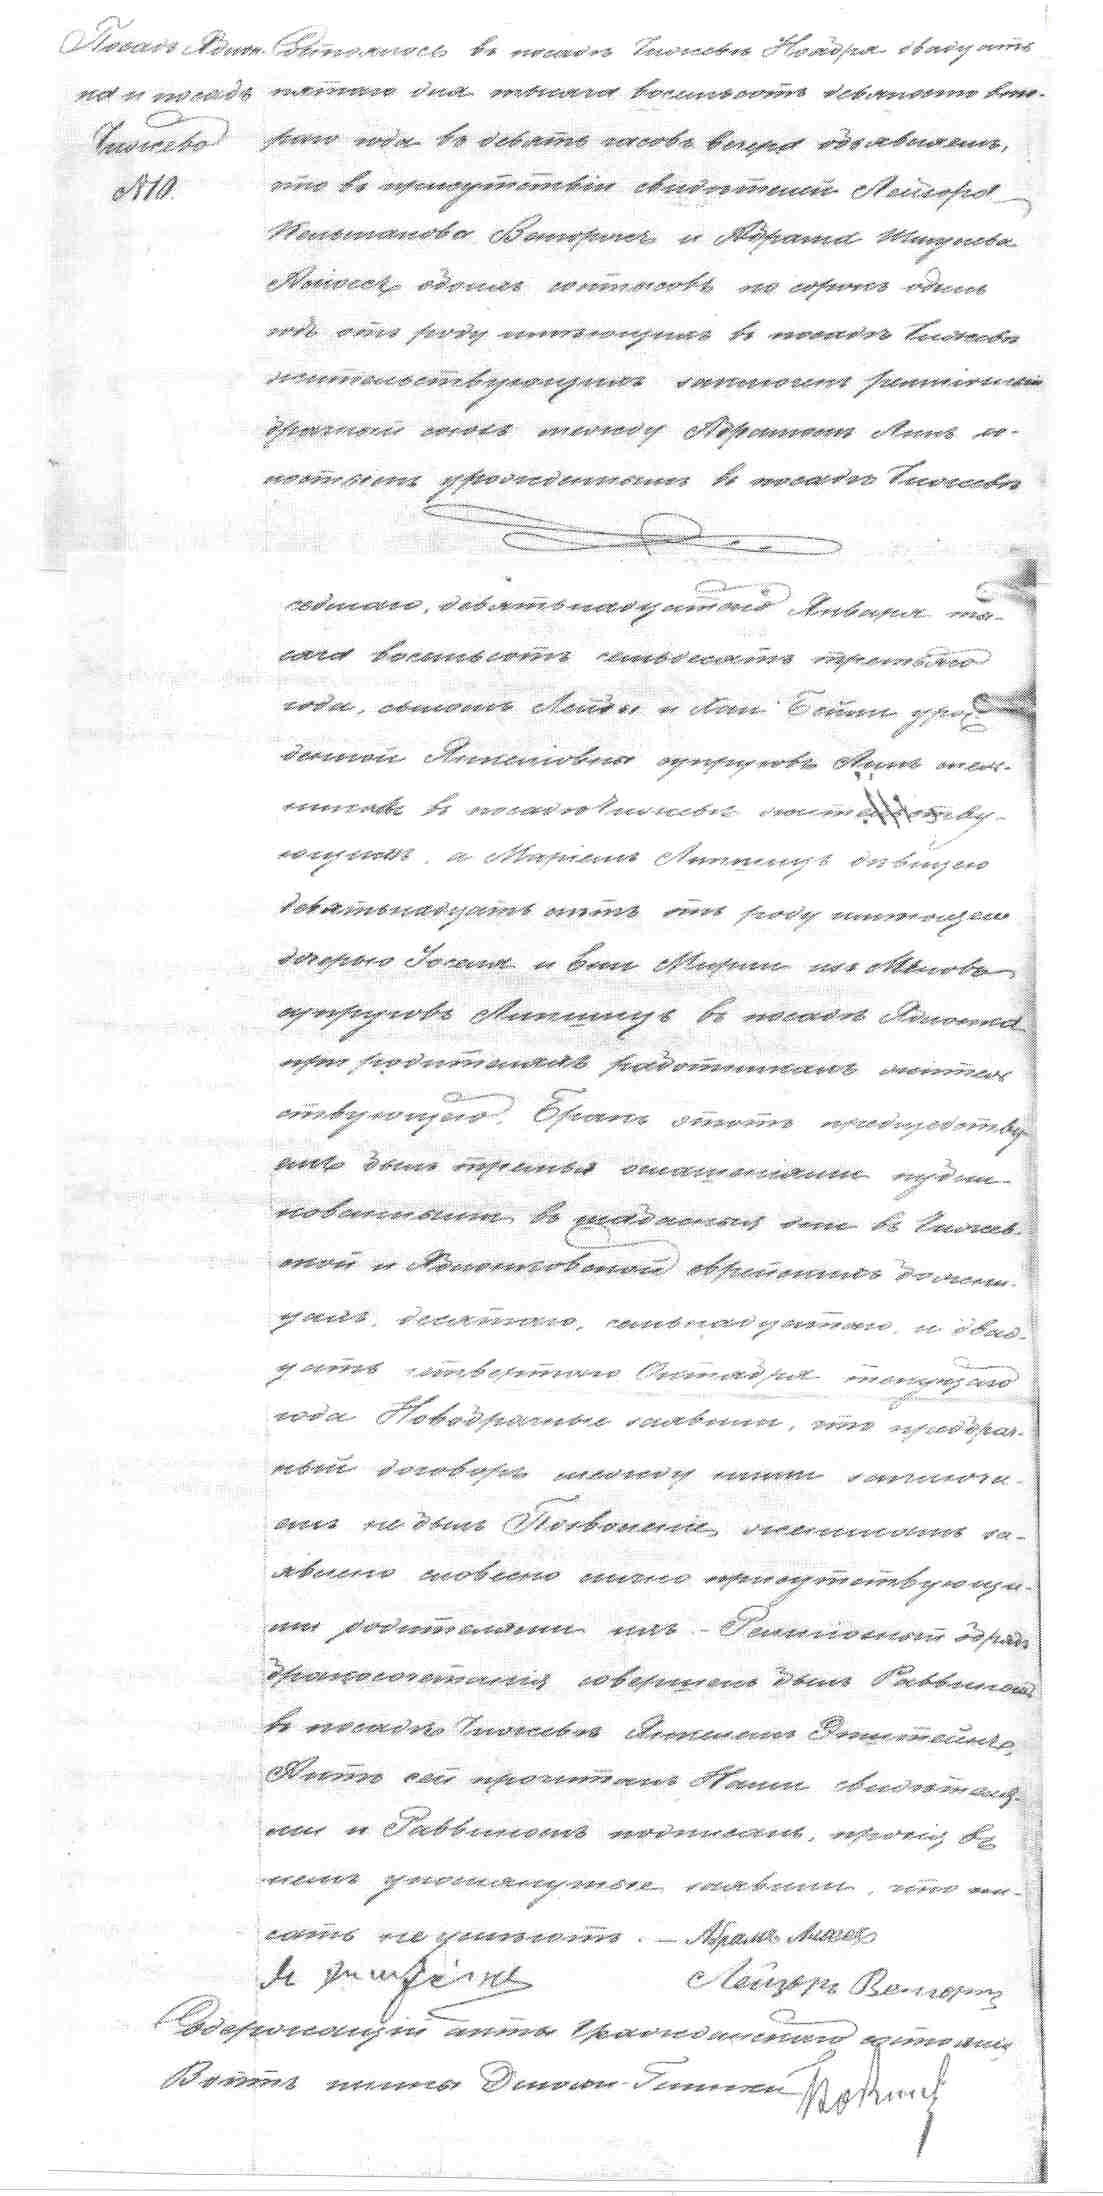 Посадъ Адамо-
на и посадъ
Чижево
№ 10.
Состоялось въ посадѣ Чижевѣ Ноября двадцать
пятаго дня тысяча восемьсотъ девяносто вто-
раго года въ девять часовъ вечера объявляемъ,
что въ присутствіи свидѣтелей Лейзора
Венгоржъ и Абрама
обоихъ по сорокъ одинъ
годъ отъ роду имѣющихъ въ посадѣ Чижевѣ
жительствующихъ заключенъ религіозный
брачный союзъ между Абрамомъ Липъ хо-
лостымъ урожденнымъ въ посадѣ Чижевѣ
седмаго, девятьнадцатаго Января ты-
сяча восемьсотъ семьдесятъ третьяго
года, сыномъ Лейбы и Хаи Бейли урож-
денной супруговъ Липъ
въ посадѣ Чижевѣ жительству-
ющихъ, а Маріемъ Липшицъ дѣвицею
девятьнадцать лѣтъ отъ роду имѣющею
дочерью Іоселя и Мирли изъ
супруговъ Липшицъ въ посадѣ
при родителяхъ работникахъ жител
ствующею. Бракъ этотъ предшеству
емъ былъ тремя оглашеніями публи-
кованными въ шабасныя дни въ Чижев-
ской и еврейскихъ божни-
цахъ, десятаго, семьнадцатаго и двад-
цать четвертаго Октября текущаго
года Новобрачные заявили, что предбрач-
ный договоръ между ними заключ-
емъ не былъ Позволеніе женихомъ за-
явлено словесно лично присутствующи-
ми родителями ихъ. - Религіозный обрядъ
бракосочетанія совершенъ былъ Раввиномъ
въ посадѣ Чижевѣ Эпштейнъ,
Актъ сей прочитанъ Нами свидѣтеля-
ми и Раввиномъ подписанъ, прочія въ
немъ упомянутые заявили, что пи-
сать не умѣютъ. - Абрамъ
Лейзоръ Венгоржъ
Содержащій акты гражданскаго состоянія
Войтъ гмины Дмохи-Глинки